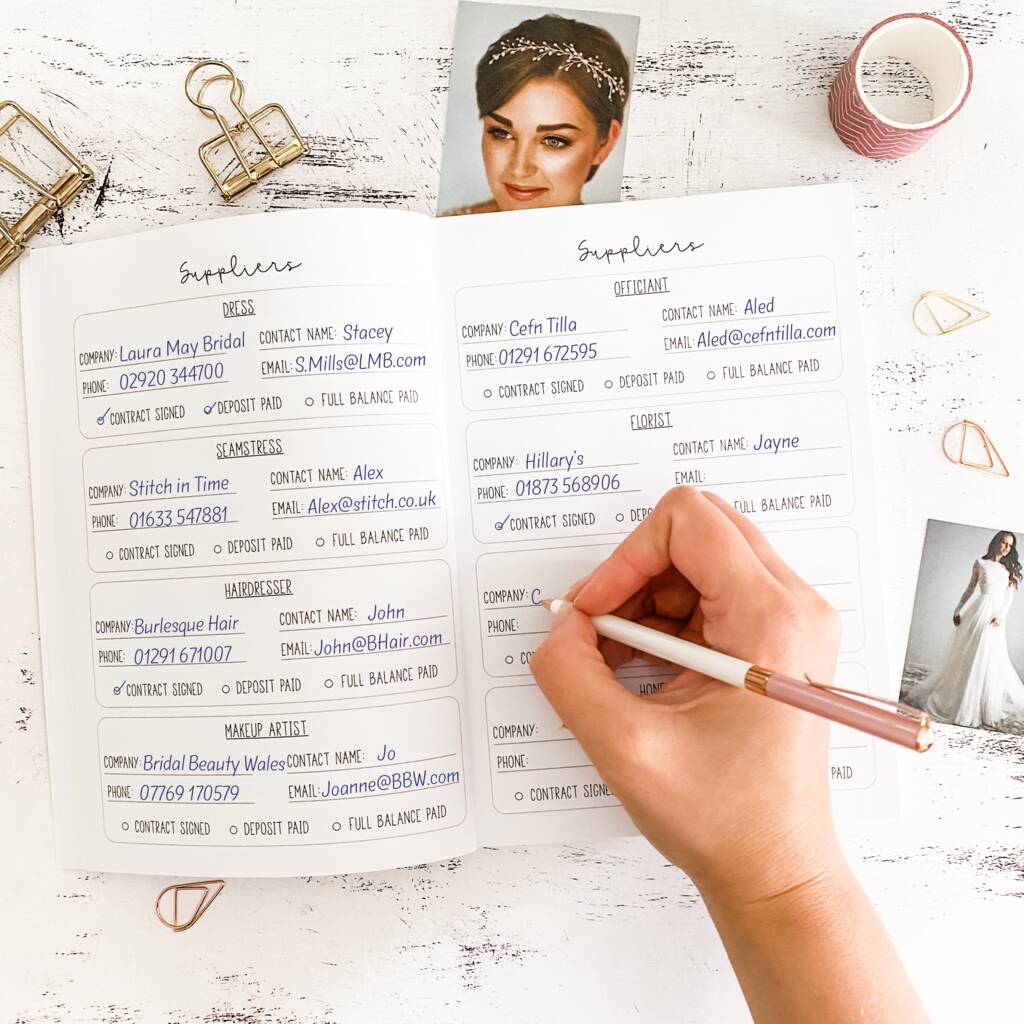 Suppliers
DRESS
COMPANY: Laura May Bridal CONTACT NAME: Stacey
PHONE: 02920 344700 EMAIL: S.Mills@LMB.com
CONTRACT SIGNED DEPOSIT PAID FULL BALANCE PAID
SEAMSTRESS
COMPANY: Stitch in Time CONTACT NAME: Alex
PHONE: 01633 547881 EMAIL: Alex@stitch.co.uk
CONTRACT SIGNED DEPOSIT PAID FULL BALANCE PAID
HAIRDRESSER
COMPANY: Burlesque Hair CONTACT NAME: John
PHONE: 01291 671007 EMAIL: John@BHair.com
CONTRACT SIGNED DEPOSIT PAID FULL BALANCE PAID
MAKEUP ARTIST
COMPANY: Bridal Beauty Wales CONTACT NAME: Jo
PHONE: 07769 170579 EMAIL: Joanne@BBW.com
CONTRACT SIGNED DEPOSIT PAID FULL BALANCE PAID
Suppliers
OFFICIANT
COMPANY: Cefn Tilla CONTACT NAME: Aled
PHONE: 01291 672595 EMAIL: Aled@cefntilla.com
CONTRACT SIGNED DEPOSIT PAID FULL BALANCE PAID
FLORIST
COMPANY: Hillary's CONTACT NAME: Jayne
PHONE: 01873 568906 EMAIL:
CONTRACT SIGNED FULL BALANCE PAID
COMPANY: C
PHONE:
COMPANY:
PHONE:
CONTRACT PAID